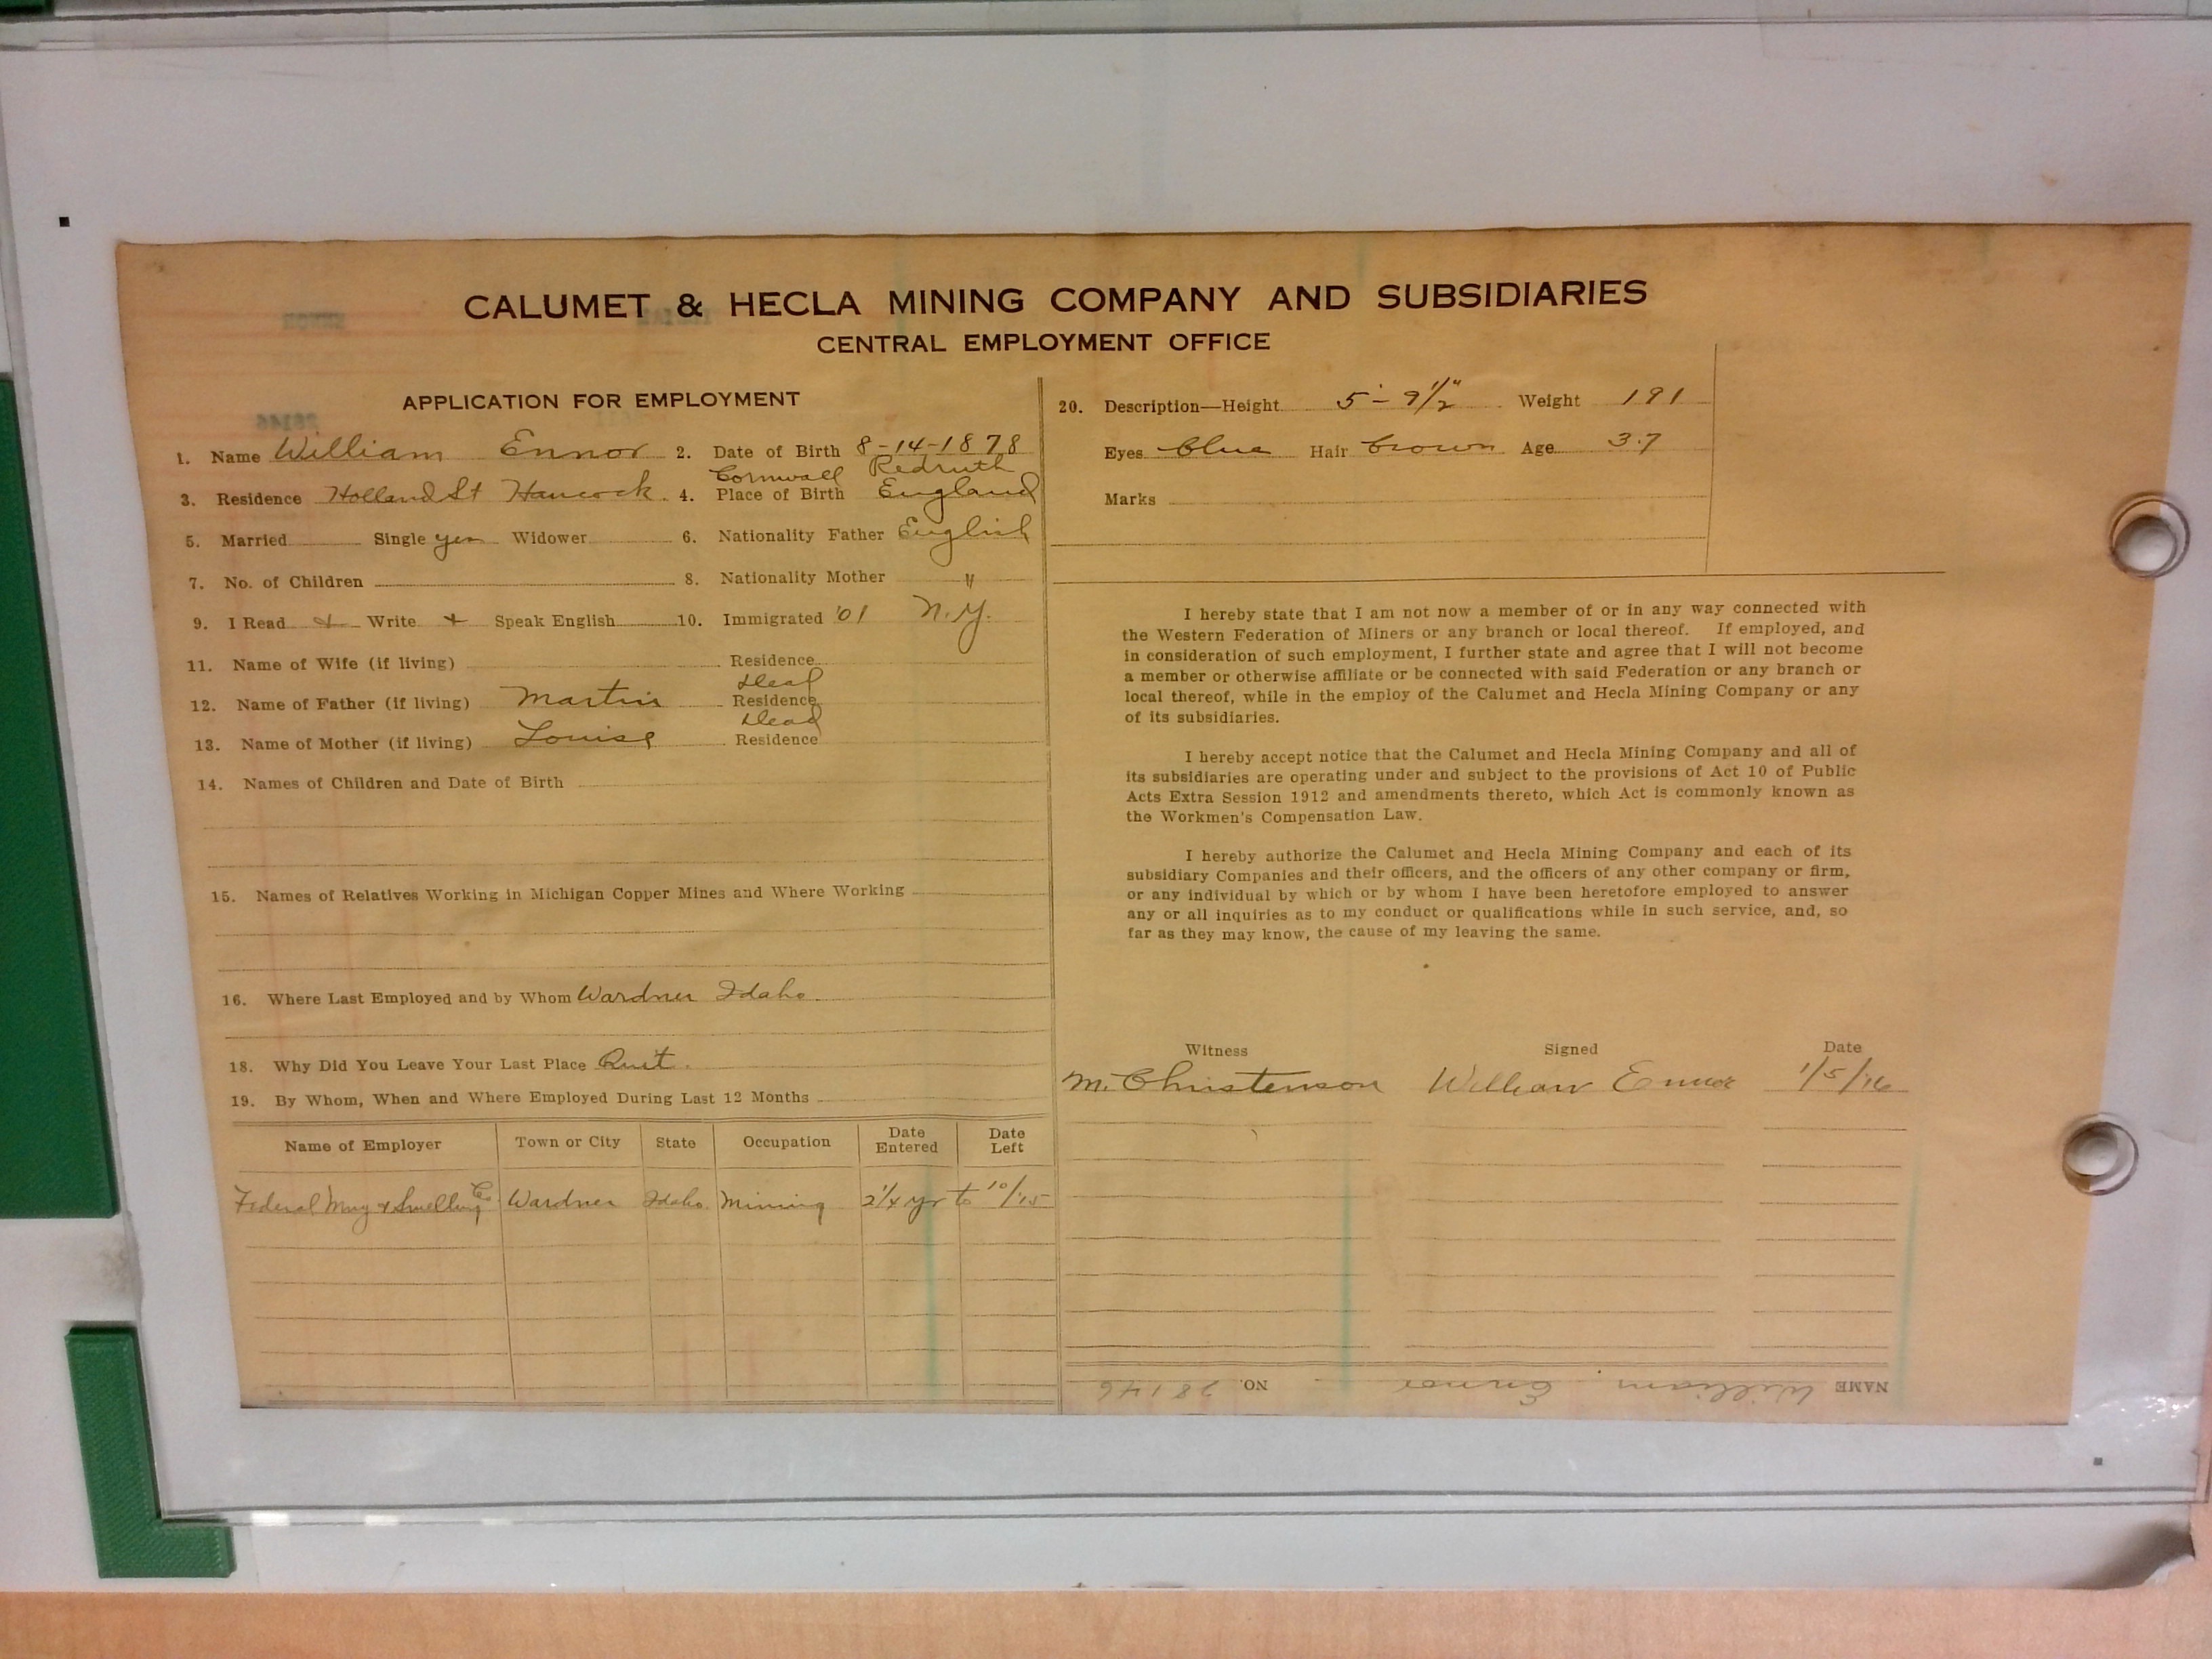 CALUMET & HECLA MINING COMPANY AND SUBSIDIARIES
CENTRAL EMPLOYMENT OFFICE
APPLICATION FOR EMPLOYMENT
1. Name William Ennor 2. Date of Birth 8-14-1878
Cornwall Redruth
3. Residence Holland St Hancock 4. Place of Birth England
5. Married Single yes Widower 6. Nationality Father English
7. No. of Children 8. Nationality Mother "
9. I Read + Write + Speak English 10. Immigrated '01 N.Y.
11. Name of Wife (if living) Residence
Dead
12. Name of Father (if living) Martin Residence
Dead
13. Name of Mother (if living) Louise Residence
14. Names of Children and Date of Birth
15. Names of Relatives Working in Michigan Copper Mines and Where Working
16. Where Last Employed and by Whom Wardner Idaho
18. Why Did You Leave Your Last Place Quit.
19. By Whom, When and Where Employed During Last 12 Months
Name of Employer Town or City State Occupation Date Entered Date Left
Federal Mng & Smelting Co Wardner Idaho Mining 2 1/4 yr to 10/15
20. Description—Height 5'-9 1/2" Weight 191
Eyes blue Hair brown Age 37
Marks
I hereby state that I am not now a member of or in any way connected with
the Western Federation of Miners or any branch or local thereof. If employed, and
in consideration of such employment, I further state and agree that I will not become
a member or otherwise affiliate or be connected with said Federation or any branch or
local thereof, while in the employ of the Calumet and Hecla Mining Company or any
of its subsidiaries.
I hereby accept notice that the Calumet and Hecla Mining Company and all of
its subsidiaries are operating under and subject to the provisions of Act 10 of Public
Acts Extra Session 1912 and amendments thereto, which Act is commonly known as
the Workmen's Compensation Law.
I hereby authorize the Calumet and Hecla Mining Company and each of its
subsidiary Companies and their officers, and the officers of any other company or firm,
or any individual by which or by whom I have been heretofore employed to answer
any or all inquiries as to my conduct or qualifications while in such service, and, so
far as they may know, the cause of my leaving the same.
Witness Signed Date
M. Christenson William Ennor 1/5/16
NAME William Ennor NO. 28146